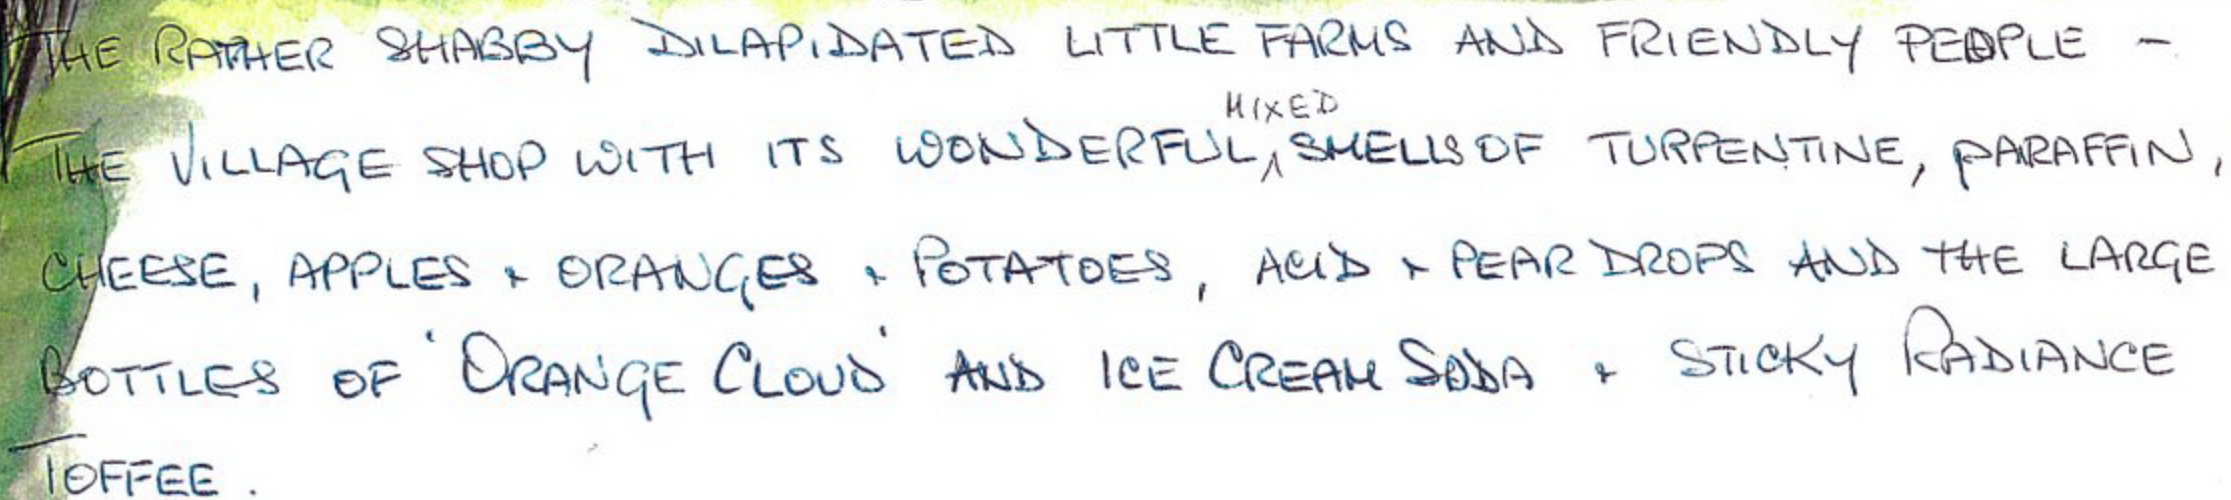 THE RATHER SHABBY DILAPIDATED LITTLE FARMS AND FRIENDLY PEOPLE -
THE VILLAGE SHOP WITH ITS WONDERFUL, MIXED SMELLS OF TURPENTINE, PARAFFIN,
CHEESE, APPLES + ORANGES + POTATOES, ACID + PEAR DROPS AND THE LARGE
BOTTLES OF 'ORANGE CLOUD' AND ICE CREAM SODA + STICKY RADIANCE
TOFFEE.